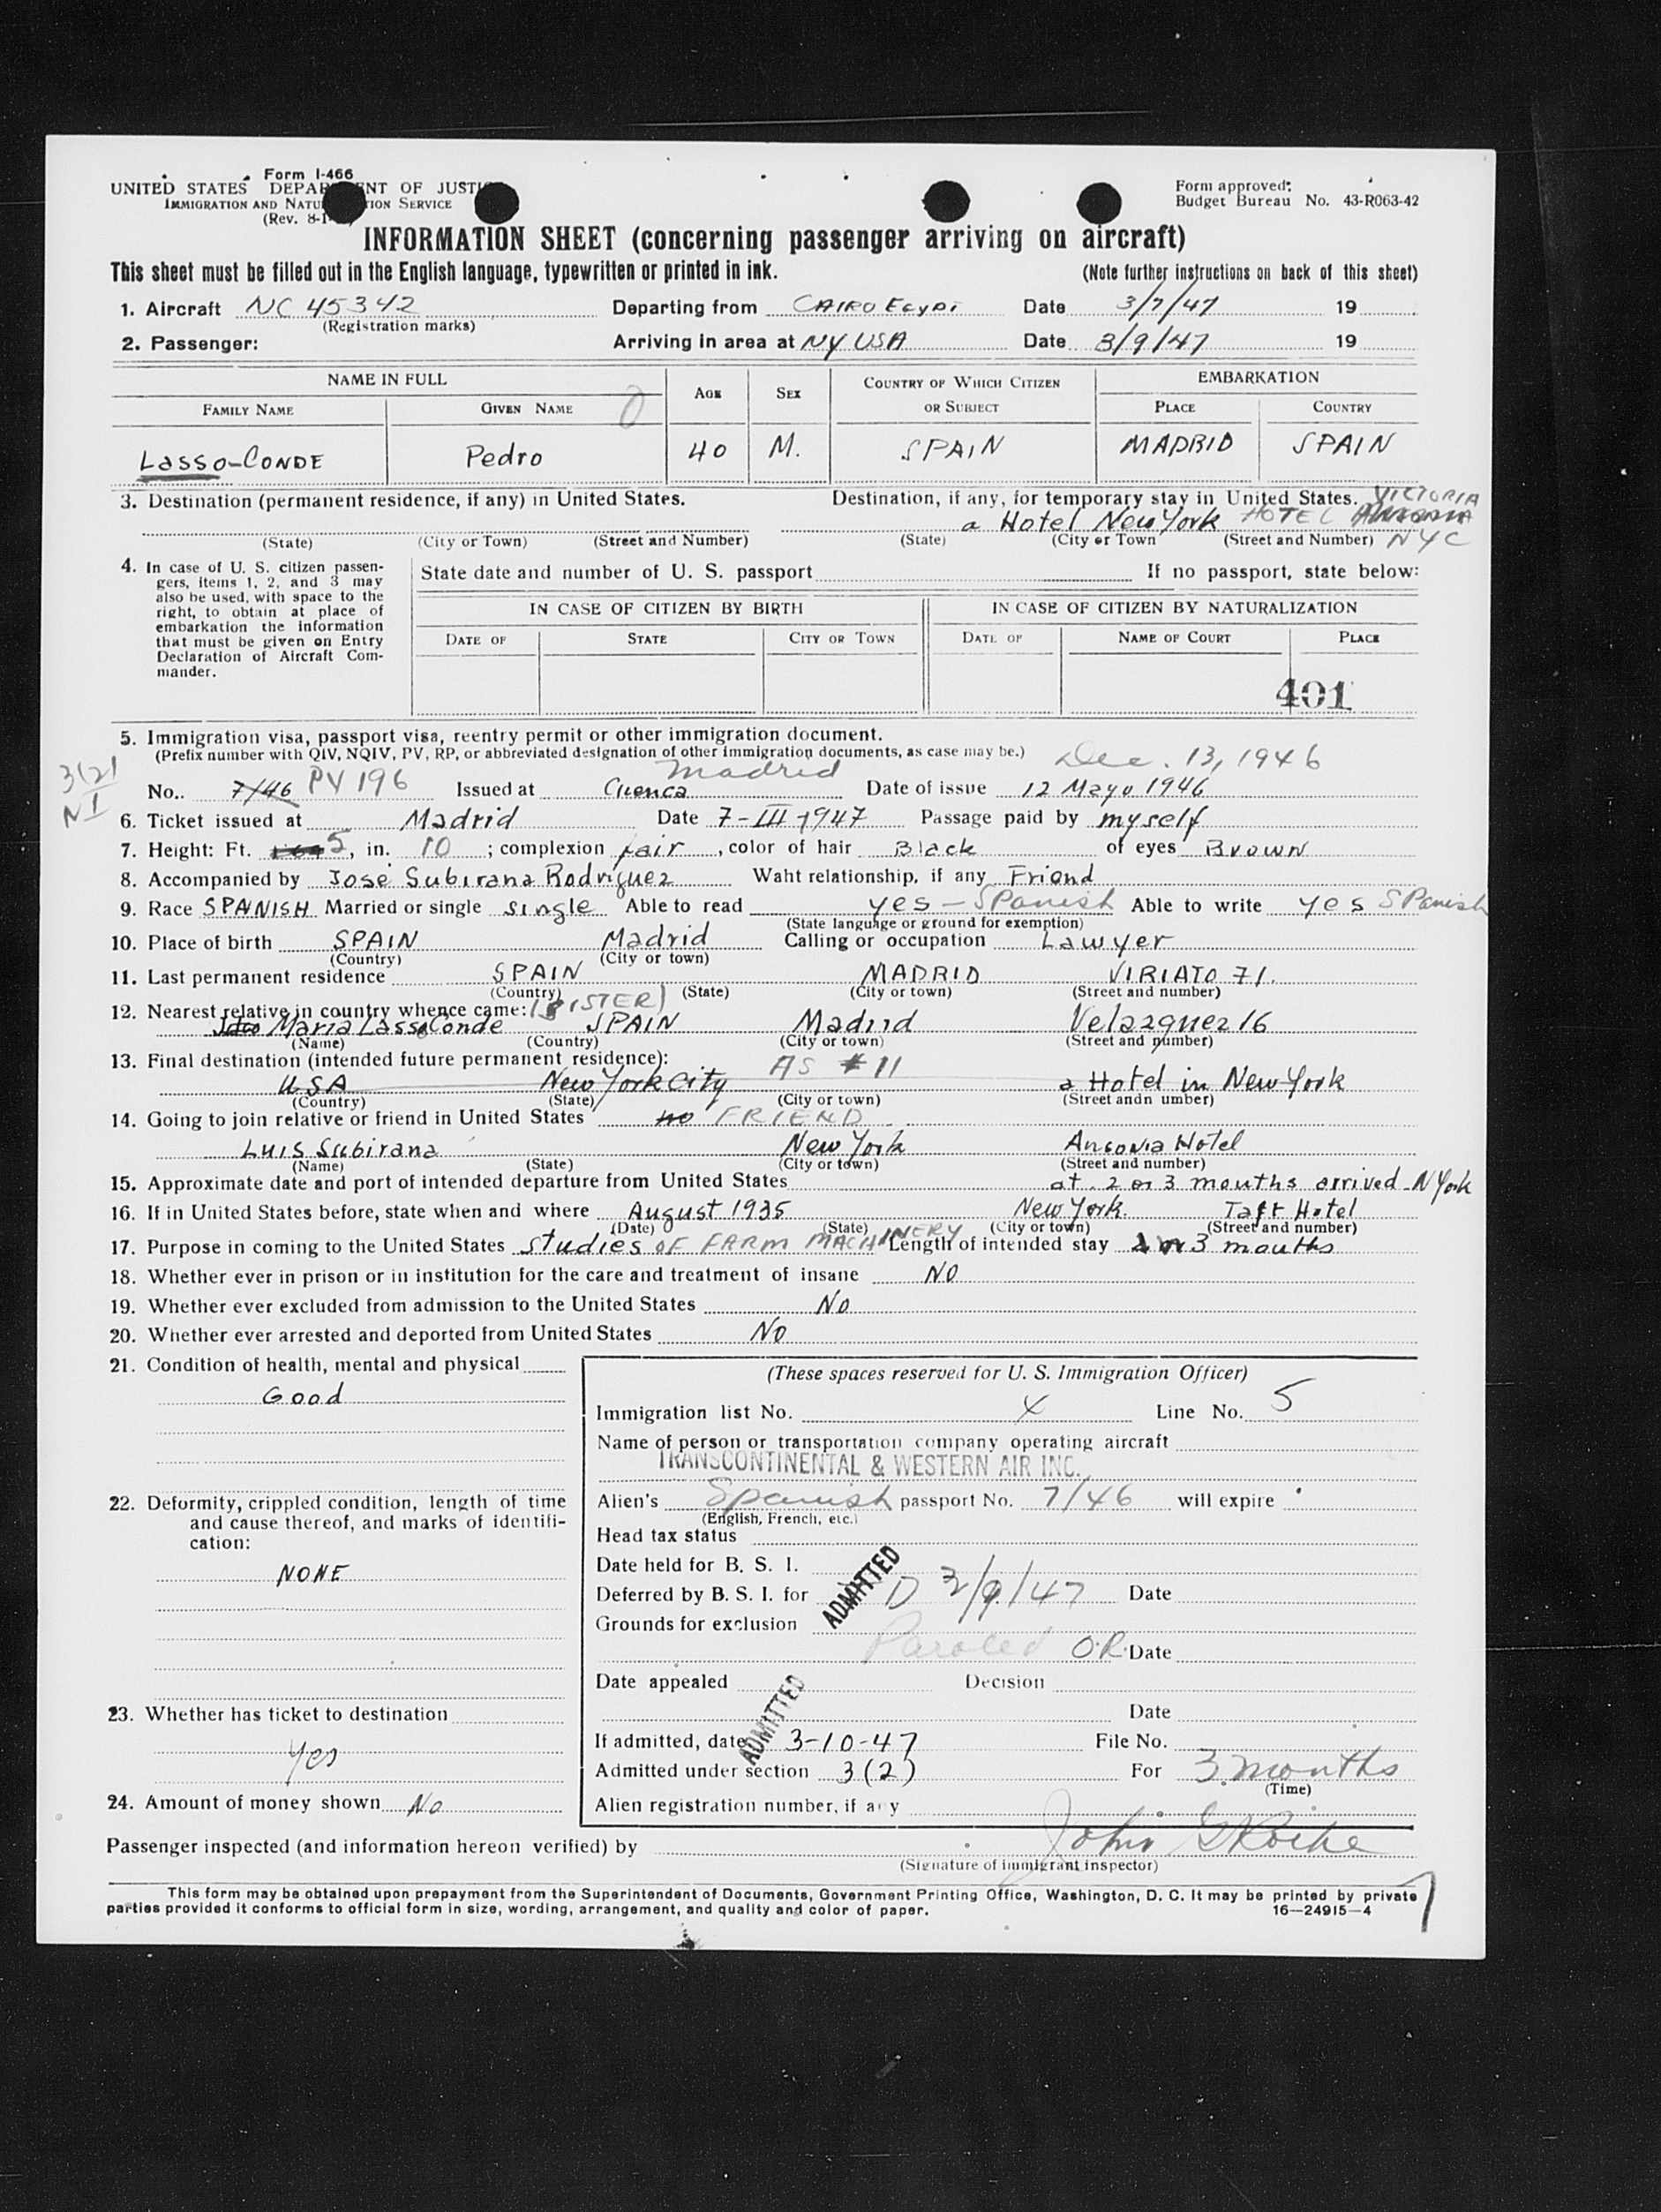 Form I-466
UNITED STATES DEPAR NT OF JUSTI
Form approved:
IMMIGRATION AND NATU TION SERVICE
Budget Bureau No. 43-R063-42
(Rev. 8-1-
INFORMATION SHEET (concerning passenger arriving on aircraft)
This sheet must be filled out in the English language, typewritten or printed in ink. (Note further instructions on back of this sheet)
1. Aircraft NC 45342 Departing from CAIRO EGYPT Date 3/7/47 19
(Registration marks)
2. Passenger: Arriving in area at NY USA Date 3/9/47 19
NAME IN FULL AGE SEX COUNTRY OF WHICH CITIZEN OR SUBJECT EMBARKATION
FAMILY NAME GIVEN NAME PLACE COUNTRY
LASSO-CONDE Pedro 40 M. SPAIN MADRID SPAIN
3. Destination (permanent residence, if any) in United States. Destination, if any, for temporary stay in United States. VICTORIA
a Hotel New York HOTEL
(State) (City or Town) (Street and Number) (State) (City or Town (Street and Number) NYC
4. In case of U. S. citizen passen-
gers, items 1, 2, and 3 may
also be used, with space to the
right, to obtain at place of
embarkation the information
that must be given on Entry
Declaration of Aircraft Com-
mander.
State date and number of U. S. passport If no passport, state below:
IN CASE OF CITIZEN BY BIRTH IN CASE OF CITIZEN BY NATURALIZATION
DATE OF STATE CITY OR TOWN DATE OF NAME OF COURT PLACE
401
5. Immigration visa, passport visa, reentry permit or other immigration document.
(Prefix number with QIV, NQIV, PV, RP, or abbreviated designation of other immigration documents, as case may be.) Dec. 13, 1946
3(2)
NI
Madrid
No.. 7/46 PV 196 Issued at Cuenca Date of issue 12 Mayo 1946
6. Ticket issued at Madrid Date 7-III-1947 Passage paid by myself
7. Height: Ft. 5, in. 10 ; complexion fair, color of hair Black of eyes Brown
8. Accompanied by José Subirana Rodriguez Waht relationship, if any Friend
9. Race SPANISH Married or single single Able to read yes - SPanish Able to write yes SPanish
(State language or ground for exemption)
10. Place of birth SPAIN Madrid Calling or occupation Lawyer
(Country) (City or town)
11. Last permanent residence SPAIN MADRID VIRIATO 71.
(Country) (State) (City or town) (Street and number)
12. Nearest relative in country whence came: (SISTER)
Maria Lasso Conde SPAIN Madrid Velazquez 16
(Name) (Country) (City or town) (Street and number)
13. Final destination (intended future permanent residence): AS # 11
USA New York City a Hotel in New York
(Country) (State) (City or town) (Street andn umber)
14. Going to join relative or friend in United States no FRIEND
Luis Subirana New York Ansonia Hotel
(Name) (State) (City or town) (Street and number)
15. Approximate date and port of intended departure from United States at 2 or 3 mouths arrived N York
16. If in United States before, state when and where August 1935 New York. Taft Hotel
(Date) (State) (City or town) (Street and number)
17. Purpose in coming to the United States studies OF FARM MACHINERY Length of intended stay 2 or 3 mouths
18. Whether ever in prison or in institution for the care and treatment of insane NO
19. Whether ever excluded from admission to the United States No
20. Whether ever arrested and deported from United States No
21. Condition of health, mental and physical
Good
22. Deformity, crippled condition, length of time
and cause thereof, and marks of identifi-
cation:
NONE
23. Whether has ticket to destination
Yes
24. Amount of money shown No
(These spaces reserved for U. S. Immigration Officer)
Immigration list No. X Line No. 5
Name of person or transportation company operating aircraft
TRANSCONTINENTAL & WESTERN AIR INC.
Alien's Spanish passport No. 7/46 will expire
(English, French, etc.)
Head tax status
Date held for B. S. I.
Deferred by B. S. I. for ADMITTED D 3/9/47 Date
Grounds for exclusion
Paroled O.R. Date
Date appealed Decision
Date
If admitted, date ADMITTED 3-10-47 File No.
Admitted under section 3(2) For 3 months
(Time)
Alien registration number, if any
Passenger inspected (and information hereon verified) by John G Roche
(Signature of immigrant inspector)
This form may be obtained upon prepayment from the Superintendent of Documents, Government Printing Office, Washington, D. C. It may be printed by private
parties provided it conforms to official form in size, wording, arrangement, and quality and color of paper. 16—24915-4